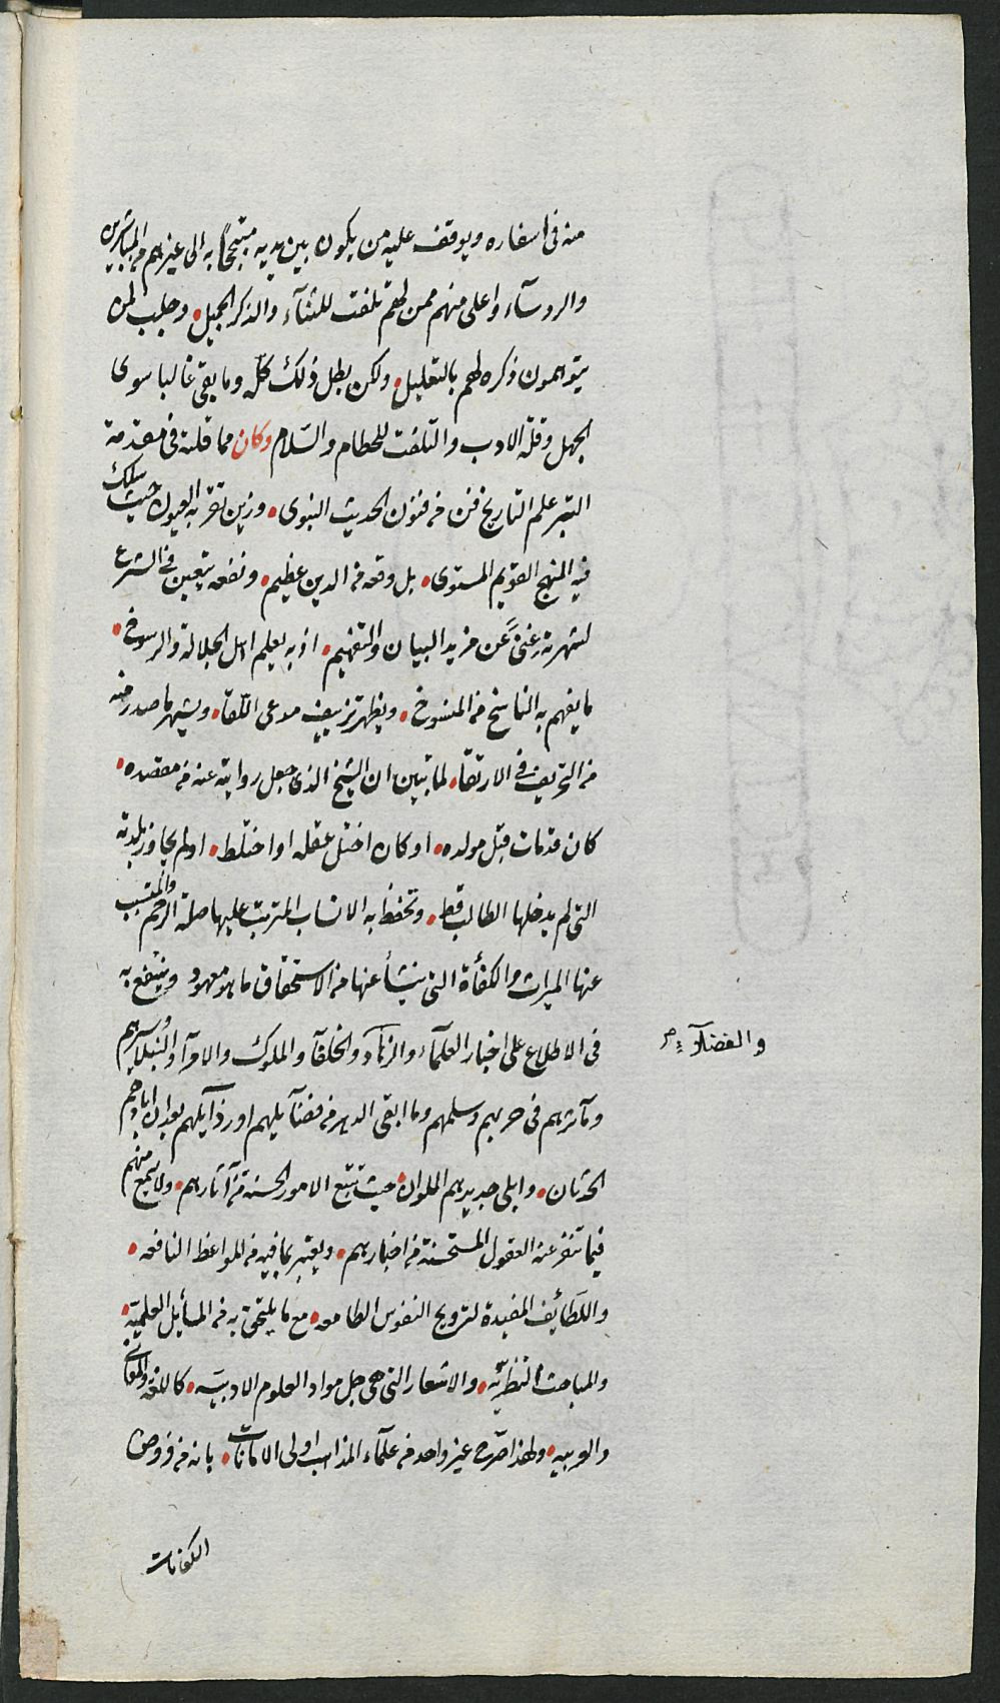 منه فى اسفاره ويوقف عليه من يكون بين يديه متبجحًا به الى غيرهم من المباشرين
والروسآء واعلى منهم ممن لهم تلفت للثنآء والذكر الجميل • وجلب لمن
يتوهمون ذكره لهم بالتقليل • ولكن بطل ذلك كلّه وما بقى غالبا سوى
الجهل وقلة الادب والتلفت للحطام والسّلام وكان مما قلته فى مقدمة
التبر علم التاريخ فن من فنون الحديث النبوى • وزين تقرّ به العيون حيث سلك
فيه المنهج القويم المستوى • بل وقعه من الدين عظيم • ونفعه يتعين فى الشرع
لشهرته غنىً عن مزيد البيان والتفهيم • اذ به يعلم اهل الجلالة والرسوخ •
ما يفهم به الناسخ من المنسوخ • ويظهر تزييف مدعى اللّقآ • ويشهر ما صدر منه
من التحريف فى الارتقآ • لما تبين ان الشيخ الذى جعل روايته عنه من مقصده •
كان قد مات قبل مولده • او كان اختل عقله او اختلط • او لم يجاوز بلدته
التى لم يدخلها الطالب قط • وتحفظ به الانساب المترتب عليها صلة الرحم والمتسبب
عنها الميراث والكفأة التى ينشأ عنها من الاستحقاق ما هو معهود وينتفع به
فى الاطلاع على اخبار العلمآء والزهاد والخلفآ والملوك والامرآ والنبلآ وسيرهم
والفضلآء صح
ومآثرهم فى حربهم وسلمهم وما ابقى الدهر من فضآئيلهم او رذآيلهم بعد ان ابادهم
الحدثان • وابلى جديدهم الملوان • حيث تتبع الامور الحسنة من آثارهم • ولا يسمع منهم
فيما تنفر عنه العقول المستحسنة من اخبارهم • ويعتبر بما فيه من المواعظ النافعه •
واللّطآئيف المفيدة لترويح النفوس الطامعه • مع ما يلتحق به من المسآيل العلميّه •
والمباحث النظريّه • والاشعار التى هى جل مواد العلوم الادبيه • كاللغه والمعانى
والعربيه • ولهذا صرّح غير واحد من علمآء المذاهب اولى الامانات • بانه من فروض
الكفايات